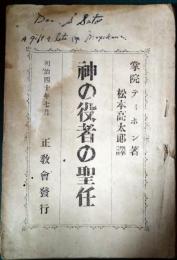 Don J Sato
A gift
掌院テーホン著
松本高太郎譯
神の役者の聖任
明治四十年七月
正教會發行